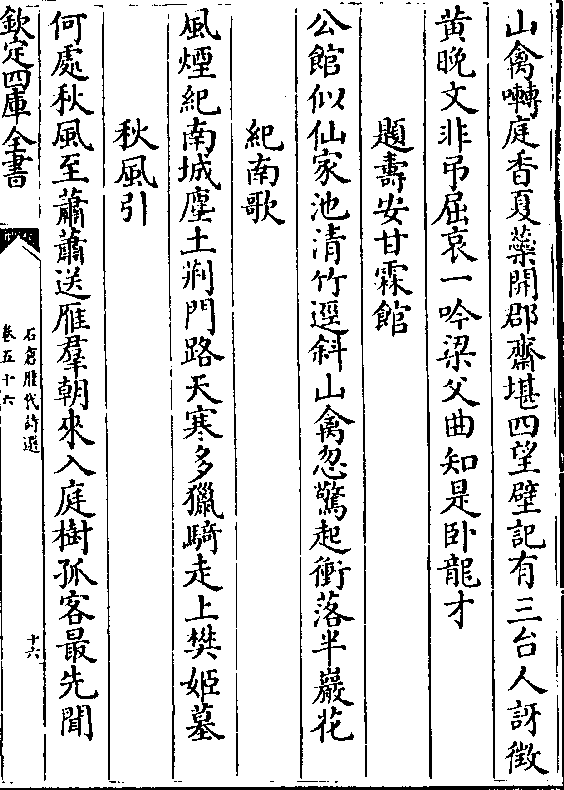 山禽囀庭香夏藥開郡齋堪四望壁記有三台人訝徵
黄晚文非弔屈哀一吟梁父曲知是卧龍才
題壽安甘霖館
公館似仙家池清竹逕斜山禽忽驚起衝落半巖花
紀南歌
風煙紀南城塵土荆門路天寒多獵騎走上樊姬墓
秋風引
何處秋風至蕭蕭送雁羣朝來入庭樹孤客最先聞
欽定四庫全書
石倉歷代詩選
卷五十六
十六